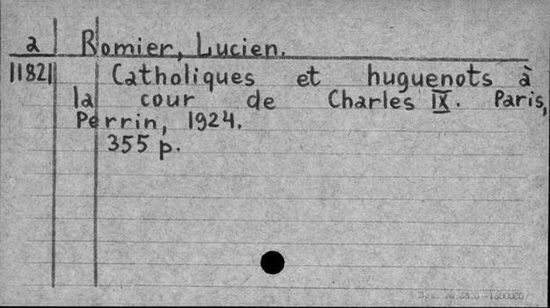 a Romier, Lucien.
11821 Catholiques et huguenots à
la cour de Charles IX. Paris,
Perrin, 1924.
355 p.